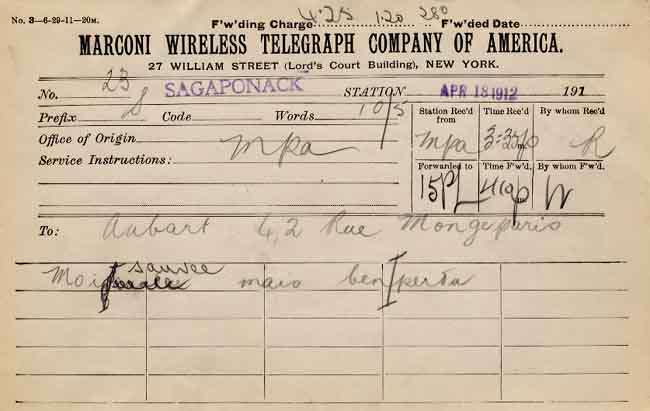 No. 3—6-29-11—20M. F'w'ding Charge 4.25 1.20 280 F'w'ded Date
MARCONI WIRELESS TELEGRAPH COMPANY OF AMERICA.
27 WILLIAM STREET (Lord's Court Building), NEW YORK.
No. 23 SAGAPONACK STATION APR 18 1912 191
Prefix S Code Words 10/5
Office of Origin Mpa
Service Instructions:
Station Rec'd from Time Rec'd By whom Rec'd.
Mpa 3-35p R
Forwarded to Time F'w'd. By whom F'w'd.
15PL 410p W
To: Aubart 42 Rue Monge paris
Moi sauvee mais ben perdu